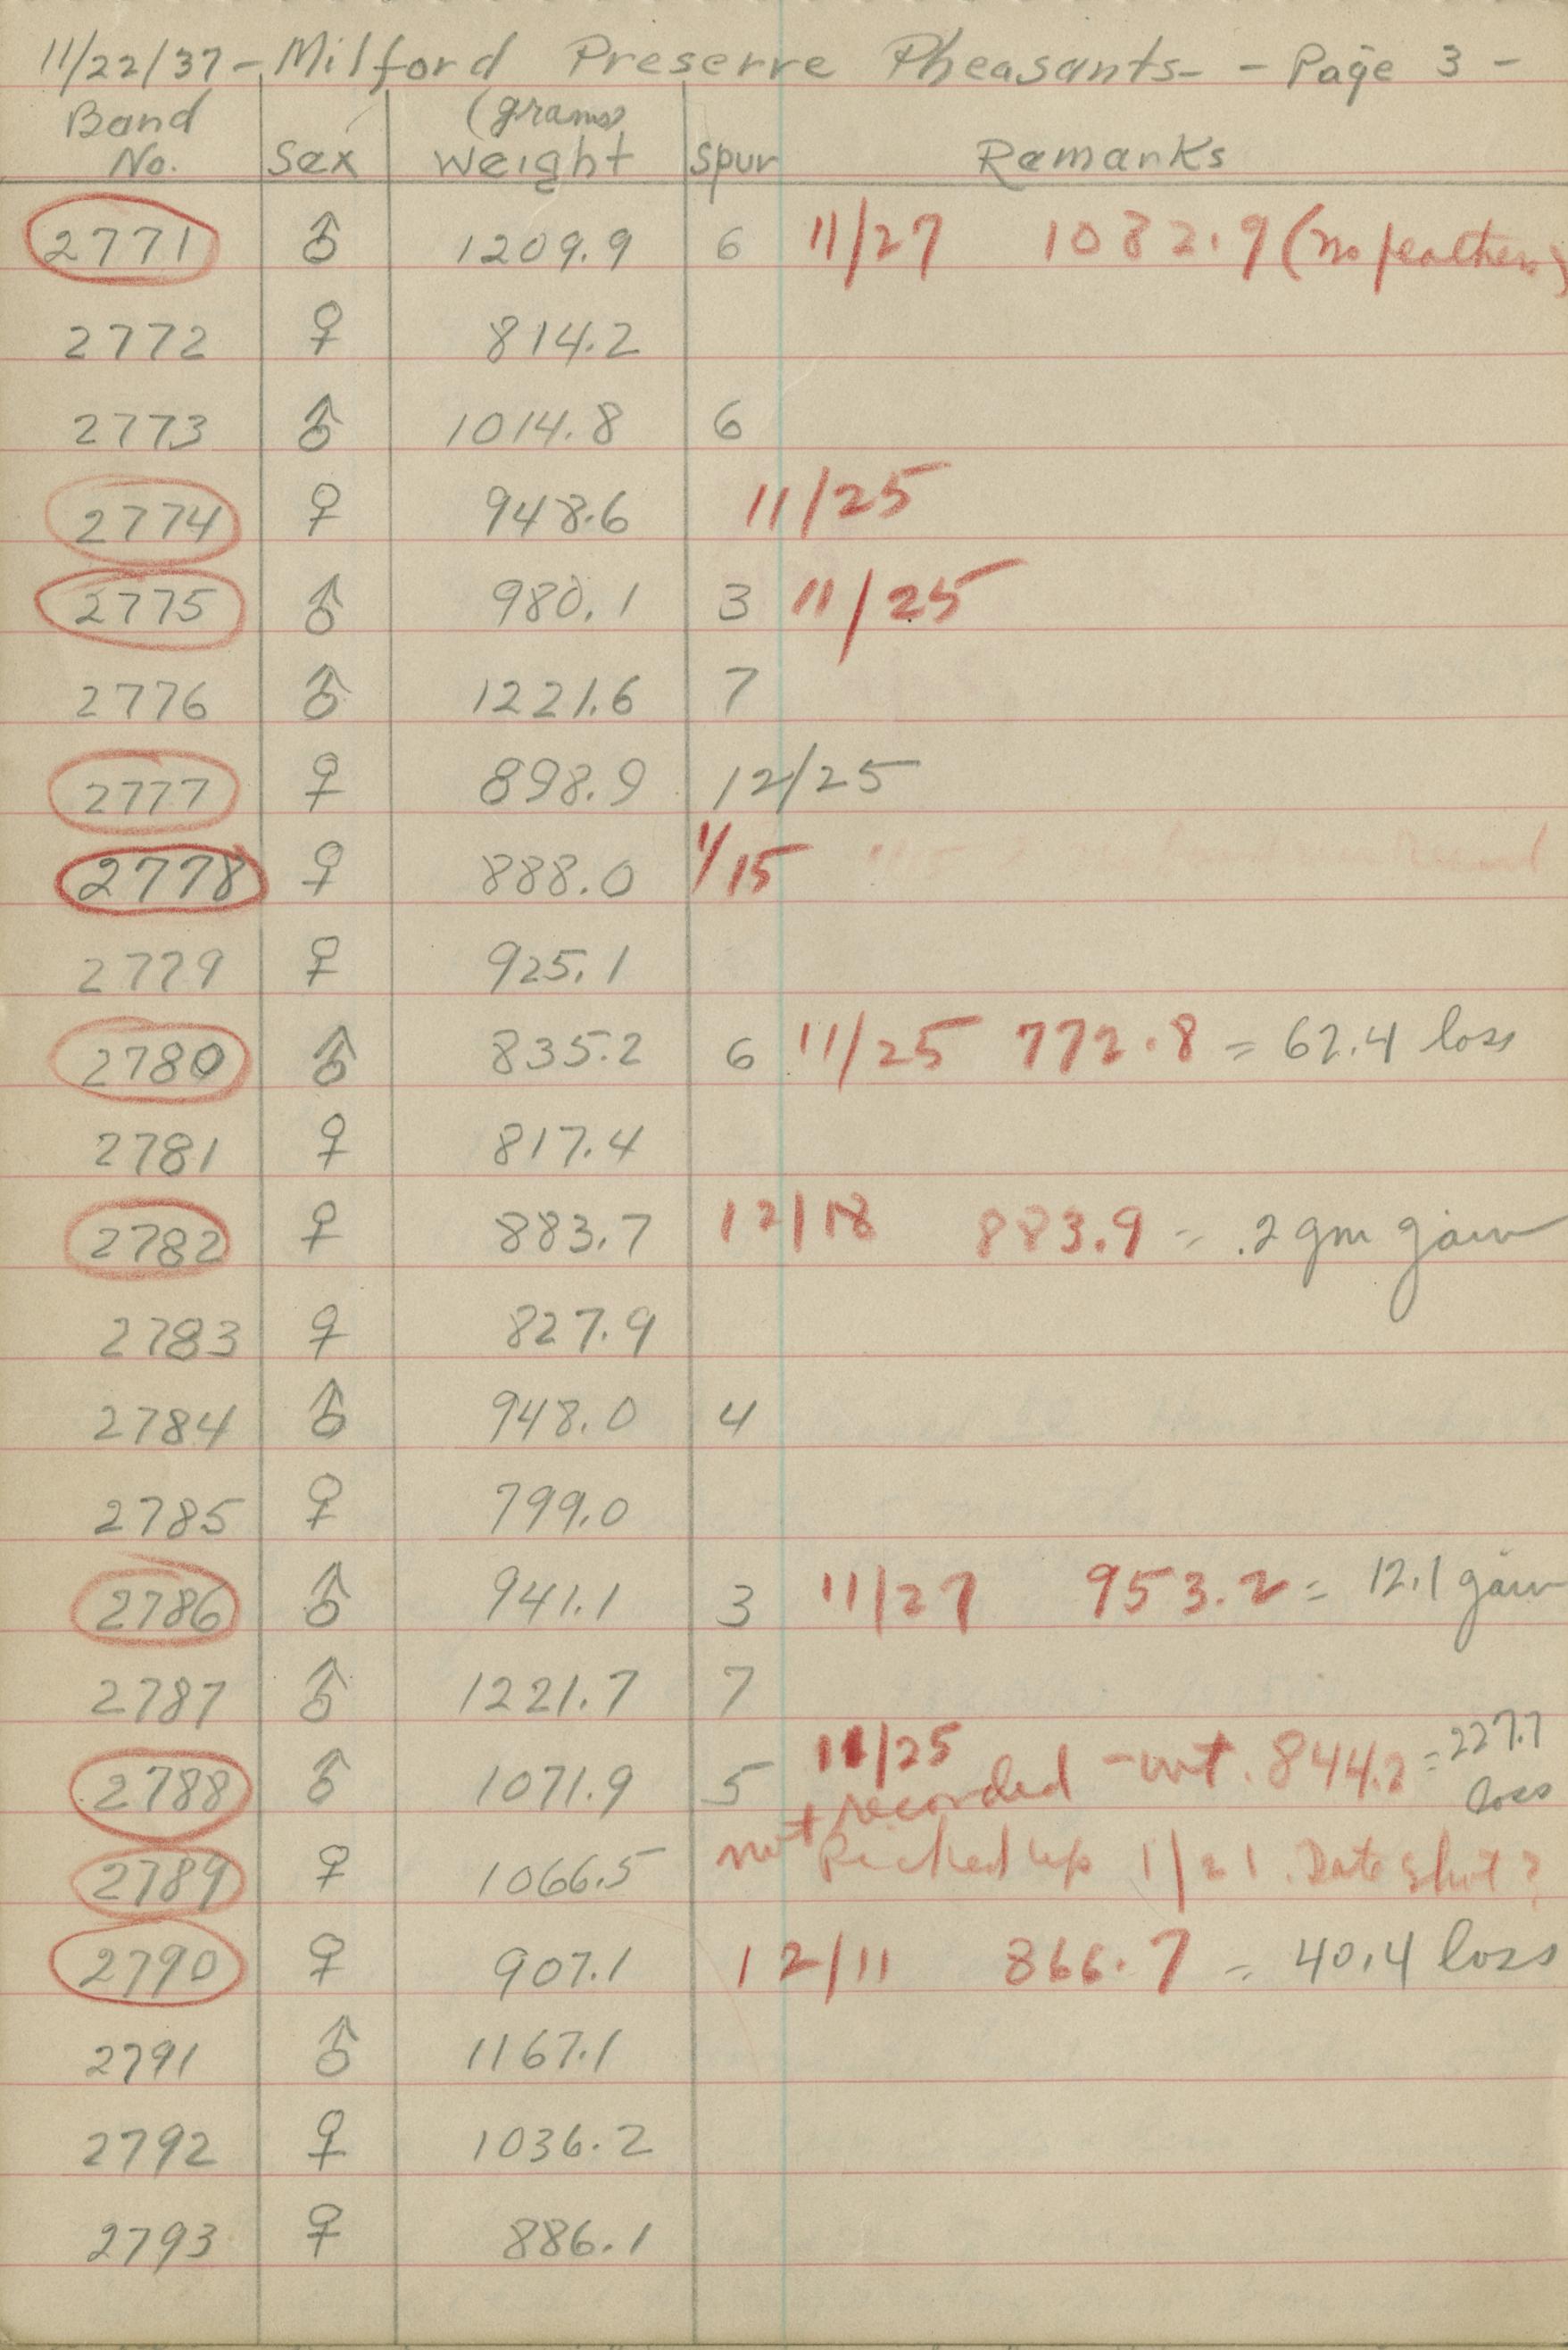 11/22/37 - Milford Preserve Pheasants - - Page 3 -
Band No. Sex (grams) Weight Spur Remarks
2771 ♂ 1209.9 6 11/27 1082.9 (no feathers)
2772 ♀ 814.2
2773 ♂ 1014.8 6
2774 ♀ 948.6 11/25
2775 ♂ 980.1 3 11/25
2776 ♂ 1221.6 7
2777 ♀ 898.9 12/25
2778 ♀ 888.0 1/15
2779 ♀ 925.1
2780 ♂ 835.2 6 11/25 772.8 = 62.4 loss
2781 ♀ 817.4
2782 ♀ 883.7 12/18 883.9 = .2 gm gain
2783 ♀ 827.9
2784 ♂ 948.0 4
2785 ♀ 799.0
2786 ♂ 941.1 3 11/27 953.2 = 12.1 gain
2787 ♂ 1221.7 7
2788 ♂ 1071.9 5 11/25 not recorded - wt. 844.2 = 227.7 loss
2789 ♀ 1066.5 Picked up 1/21. Date shot?
2790 ♀ 907.1 12/11 866.7 = 40.4 loss
2791 ♂ 1167.1
2792 ♀ 1036.2
2793 ♀ 886.1